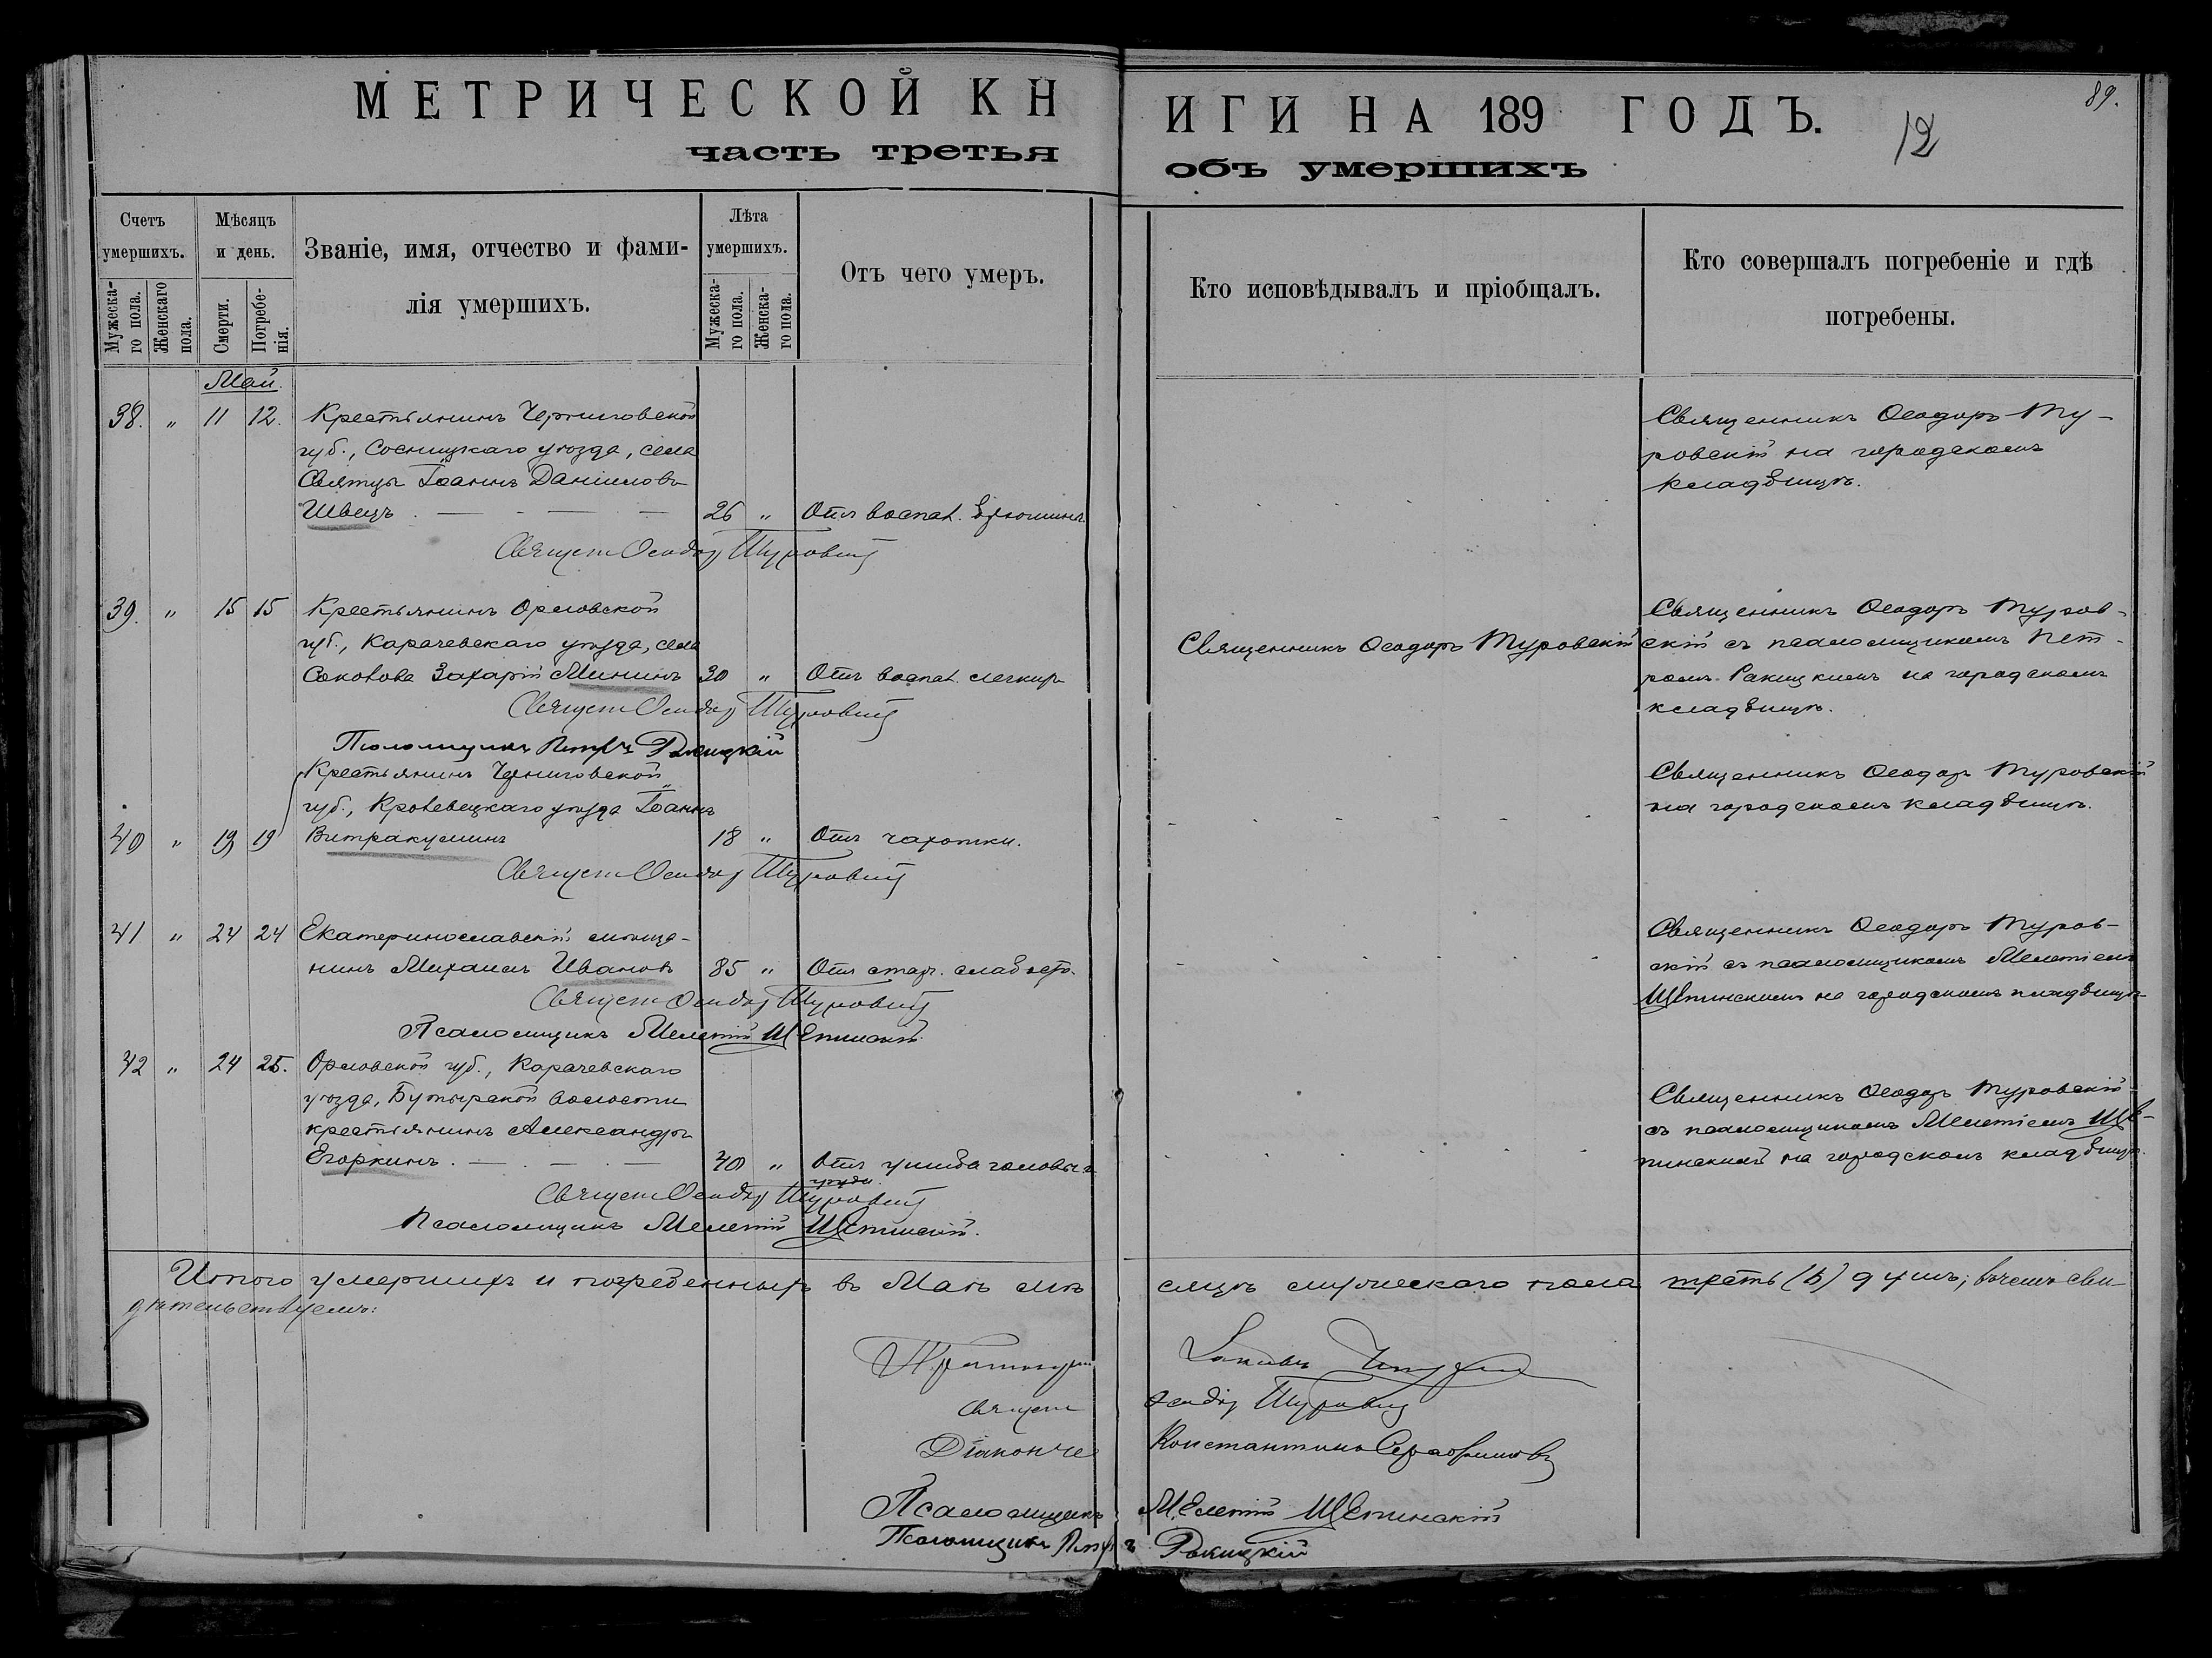 МЕТРИЧЕСКОЙ КН
ИГИ НА 189 ГОДЪ.
89.
12
часть третья
объ умершихъ
Счетъ умершихъ.
Мѣсяцъ и день.
Званіе, имя, отчество и фами-
лія умершихъ.
Лѣта умершихъ.
Отъ чего умеръ.
Кто исповѣдывалъ и пріобщалъ.
Кто совершалъ погребеніе и гдѣ
погребены.
Мужеска-
го пола.
Женскаго
пола.
Смерти.
Погребе-
нія.
Мужеска-
го пола.
Женска-
го пола.
Май.
38. " 11 12. Крестьянинъ Черниговской
губ., Сосницкаго уѣзда, села
Іоаннъ Даниловъ
Швецъ 26 " Отъ воспал. брюшины.
Священникъ Ѳеодоръ Ту-
ровскій на городскомъ
кладбищѣ.
Священ Ѳеодоръ Туровскій
39. " 15 15 Крестьянинъ Орловской
губ., Карачевскаго уѣзда, села
Захарій Мининъ 30 " Отъ воспал. легкихъ
Священникъ Ѳеодоръ Туровскій
Священникъ Ѳеодоръ Туров-
скій съ псаломщикомъ Пет-
ромъ Ракицкимъ на городскомъ
кладбищѣ.
Священ Ѳеодоръ Туровскій
Псаломщикъ Петръ Ракицкій
Крестьянинъ Черниговской
губ., Кролевецкаго уѣзда Іоаннъ
40 " 19 19 18 " Отъ чахотки.
Священникъ Ѳеодоръ Туровскій
на городскомъ кладбищѣ.
Священ Ѳеодоръ Туровскій
41 " 24 24 Екатеринославскій мѣща-
нинъ Михаилъ Ивановъ 85 " Отъ стар. слабост.
Священникъ Ѳеодоръ Туров-
скій съ псаломщикомъ Мелетіемъ
Щепинскимъ на городскомъ кладбищѣ
Священ Ѳеодоръ Туровскій
Псаломщикъ Мелетій Щепинскій
42 " 24 25. Орловской губ., Карачевскаго
уѣзда, волости
крестьянинъ Александръ
Егоркинъ. 40 " Отъ ушиба головы и
груди.
Священникъ Ѳеодоръ Туровскій
съ псаломщикомъ Мелетіемъ Ще-
пинскимъ на городскомъ кладбищѣ.
Священ Ѳеодоръ Туровскій
Псаломщикъ Мелетій Щепинскій.
Итого умершихъ и погребенныхъ въ Маѣ мѣ
сяцѣ мужескаго пола пять (5) душъ; въ чемъ сви-
дѣтельствуемъ:
Священ Ѳеодоръ Туровскій
Діаконъ Константинъ Серафимовъ
Псаломщикъ Мелетій Щепинскій
Псаломщикъ Петръ Ракицкій